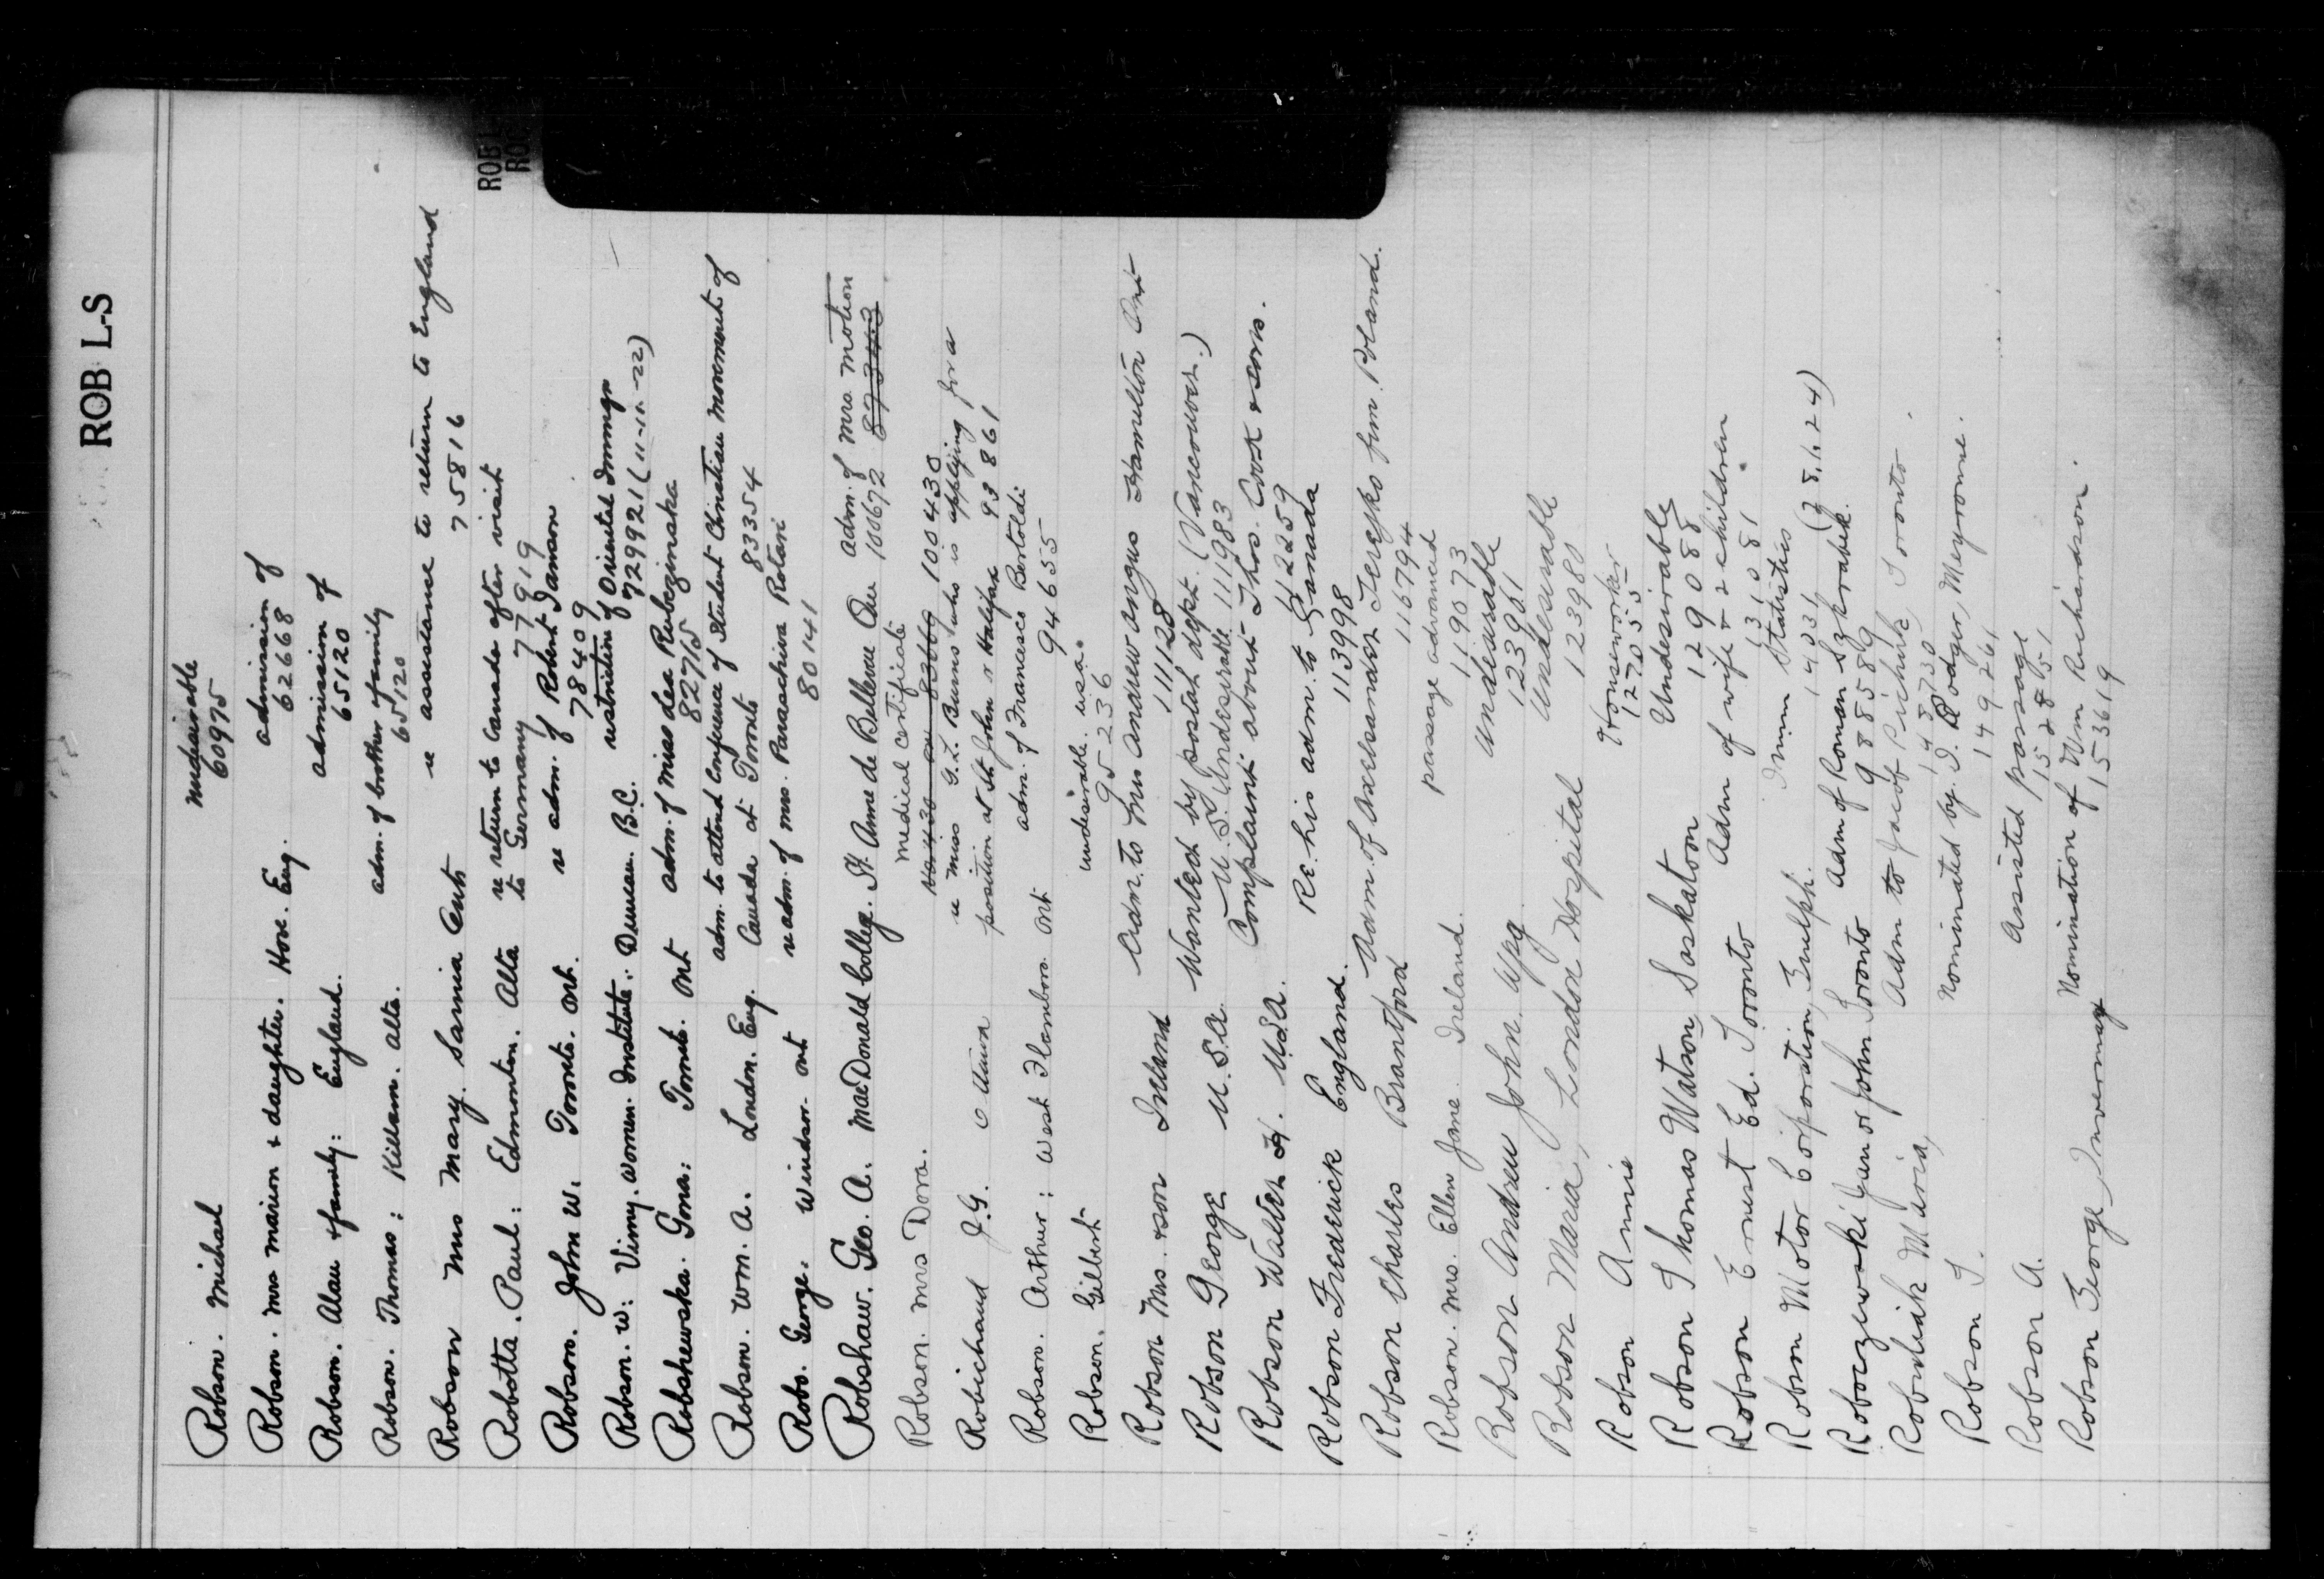 ROB L-S
ROB L-
RO
Robson. Michael undesirable
60975
Robson. Mrs Marion & daughter. Hove. Eng. admission of
62668
Robson. Alan & family: England. admission of
65120
Robson. Thomas: Killam. Alta. adm. of brother & family
65120
Robson Mrs Mary. Sarnia Ont re assistance to return to England
75816
Robotta. Paul: Edmonton. Alta re return to Canada after visit
to Germany 77919
Robson. John W. Toronto. Ont. re adm. of Robert
78409
Robson. W: Vimy. Women. Institute. Duncan. B.C. restriction of Oriental Immgn
729921 (11-10-22)
Robshewska. Gona: Toronto. Ont adm. of Miss Lea Rubezinska
82715
Robson. Wm. A. London. Eng. adm. to attend Conference of Student Christian Movement of
Canada at Toronto 83354
Robo. George. Windsor. Ont re adm. of Mrs. Paraschiva Rotani
80141
Robshaw. Geo. A. MacDonald College. St Anne de Bellevue Que adm. of Mrs. Motion
100672 893443
Robson. Mrs Dora. Medical Certificate
100430
Robichaud J.G. Ottawa re Miss G.L. Burns who is applying for a
position at St John or Halifax 93861
Robson. Arthur: West Flamboro. Ont adm. of Francesco Bertoldi
94655
Robson. Gilbert undesirable. USA.
95236
Robson Mrs. & son Ireland Adm. to Mrs Andrew Angus Hamilton Ont
111128
Robson George U.S.A. Wanted by postal dept. (Vancouver.)
U.S. Undesirable 111983
Robson Walter H. U.S.A. Complaint about Thos. Cook & Sons.
112259
Robson Frederick England. Re his adm. to Canada
113998
Robson Charles Brantford Adm. of Alexsander Tereszko frm. Poland.
116794
Robson. Mrs. Ellen Jane Ireland. passage advanced
119073
Robson Andrew John. Wpg. Undesirable
123961
Robson Maria, London Hospital Undesirable
123980
Robson Annie Houseworker
127055
Robson Thomas Watson, Saskatoon Undesirable
129088
Robson Ernest Ed. Toronto Adm of wife & 2 children
131081
Robson Motor Corporation, Guelph. Immn Statistics
14031 (28.1.24)
Roboczewski Jun or John Toronto Adm of Roman Szkrabek.
988589
Robshik Maria, Adm to Jacob Toronto.
143730
Robson T. Nominated by J. Rodger, Meyronne.
149261
Robson A. Assisted passage
152851
Robson George, Invermay Nomination of Wm Richardson.
153619